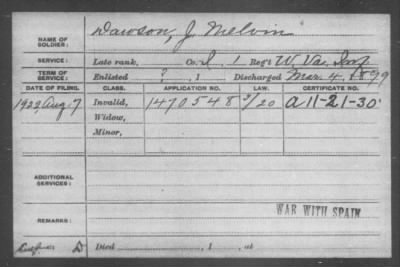 NAME OF SOLDIER: Dawson, J. Melvin
SERVICE: Late rank, Co. I, 1 Reg't W. Va. Inf
TERM OF SERVICE: Enlisted ?, 1 Discharged Mar. 4, 1899
DATE OF FILING. CLASS. APPLICATION NO. LAW. CERTIFICATE NO.
1922, Aug 7 Invalid, 1470548 /20 a 11-21-30
Widow,
Minor,
ADDITIONAL SERVICES:
WAR WITH SPAIN
REMARKS:
D Died , 1 , at